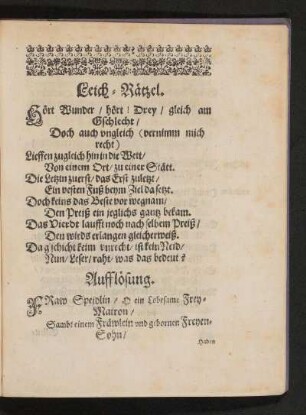 Leich-Rätzel.
Hört Wunder / hört! Drey / gleich am
Gschlecht /
Doch auch vngleich (vernimm mich
recht)
Lieffen zugleich hin in die Wett /
Von einem Ort / zu einer Stätt.
Die Letzin zuerst / das Erst zuletzt /
Ein vesten Fuß beym Ziel da setzt.
Doch keins das Beste vor wegnam /
Den Preiß ein jeglichs gantz bekam.
Das Vierdt laufft noch nach selbem Preiß /
Den wirds erlangen gleicherweiß.
Da gschicht keim vnrecht / ist kein Neid /
Nun / Leser / raht / was das bedeut?
Aufflösung.
FRaw Speidlin / O ein Lobesame Frey-
Matron /
Sambt einem Fräwlein vnd gebornen Freyen-
Sohn /
Haben